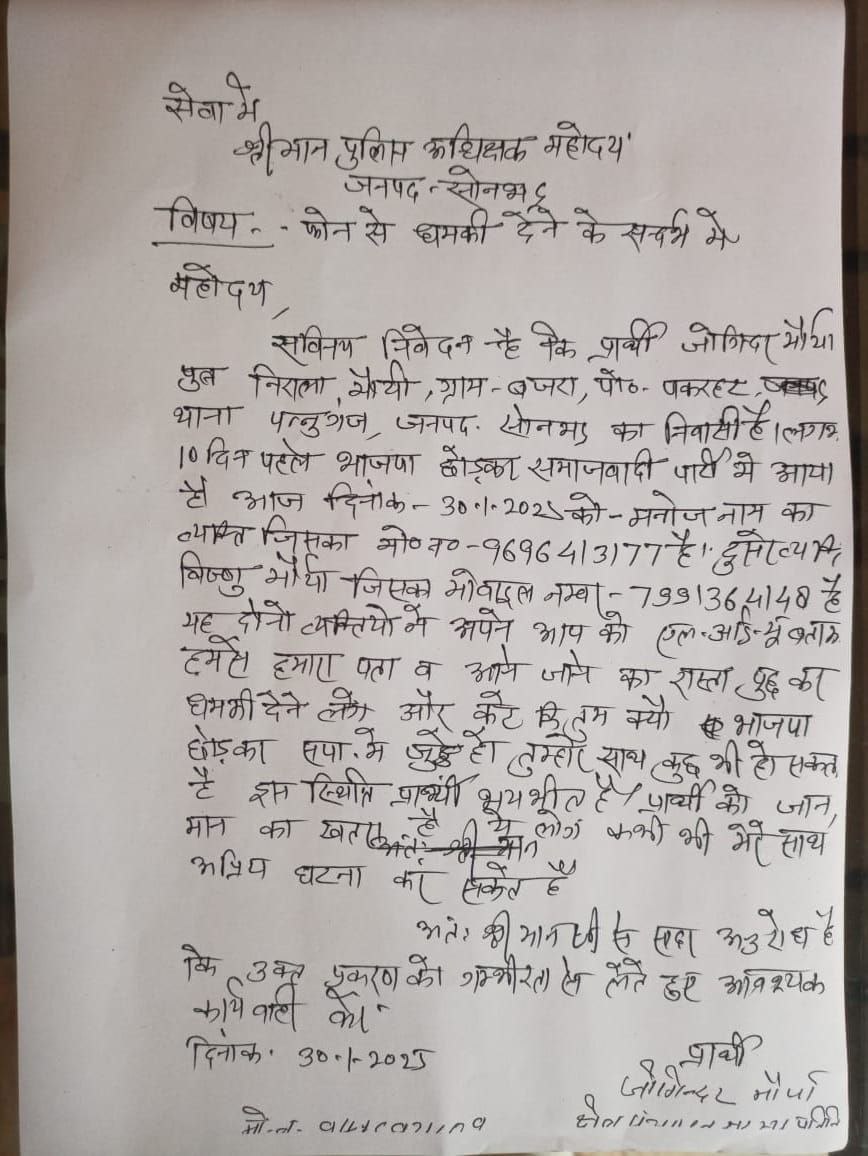 सेवा में
श्रीमान पुलिस अधिक्षक महोदय
जनपद - सोनभद्र
विषय - फोन से धमकी देने के सन्दर्भ में
महोदय,
सविनय निवेदन है कि प्रार्थी जोगिंदर मौर्या
पुत्र निराला मौर्या, ग्राम - बजरा, पो०- पकरहट,
थाना पन्नुगंज, जनपद- सोनभद्र का निवासी है। लगभग
10 दिन पहले भाजपा छोड़कर समाजवादी पार्टी में आया
है आज दिनांक - 30.1.2025 को - मनोज नाम का
व्यक्ति जिसका मो० न० - 9696413177 है। दुसरे व्यक्ति
विष्णु मौर्या जिसका मोबाइल नम्बर - 7991364148 है
यह दोनो व्यक्तियो में अपने आप को एल-आई-यू बताकर
हमसे हमारा पता व आने जाने का रास्ता पुछ कर
धमकी देने लगे और कहे कि तुम क्यों भाजपा
छोड़कर सपा में जुड़े हो तुम्हारे साथ कुछ भी हो सकता
है इस स्थिति प्रार्थी भयभीत है। प्रार्थी को जान,
माल का खतरा है ये लोग कभी भी मेरे साथ
अप्रिय घटना कर सकते है
अतः श्रीमान जी से सादर अनुरोध है
कि उक्त प्रकरण को गम्भीरता से लेते हुए आवश्यक
कार्यवाही करें।
दिनांक. 30.1.2025 प्रार्थी
जोगिन्दर मौर्या
मो. न.